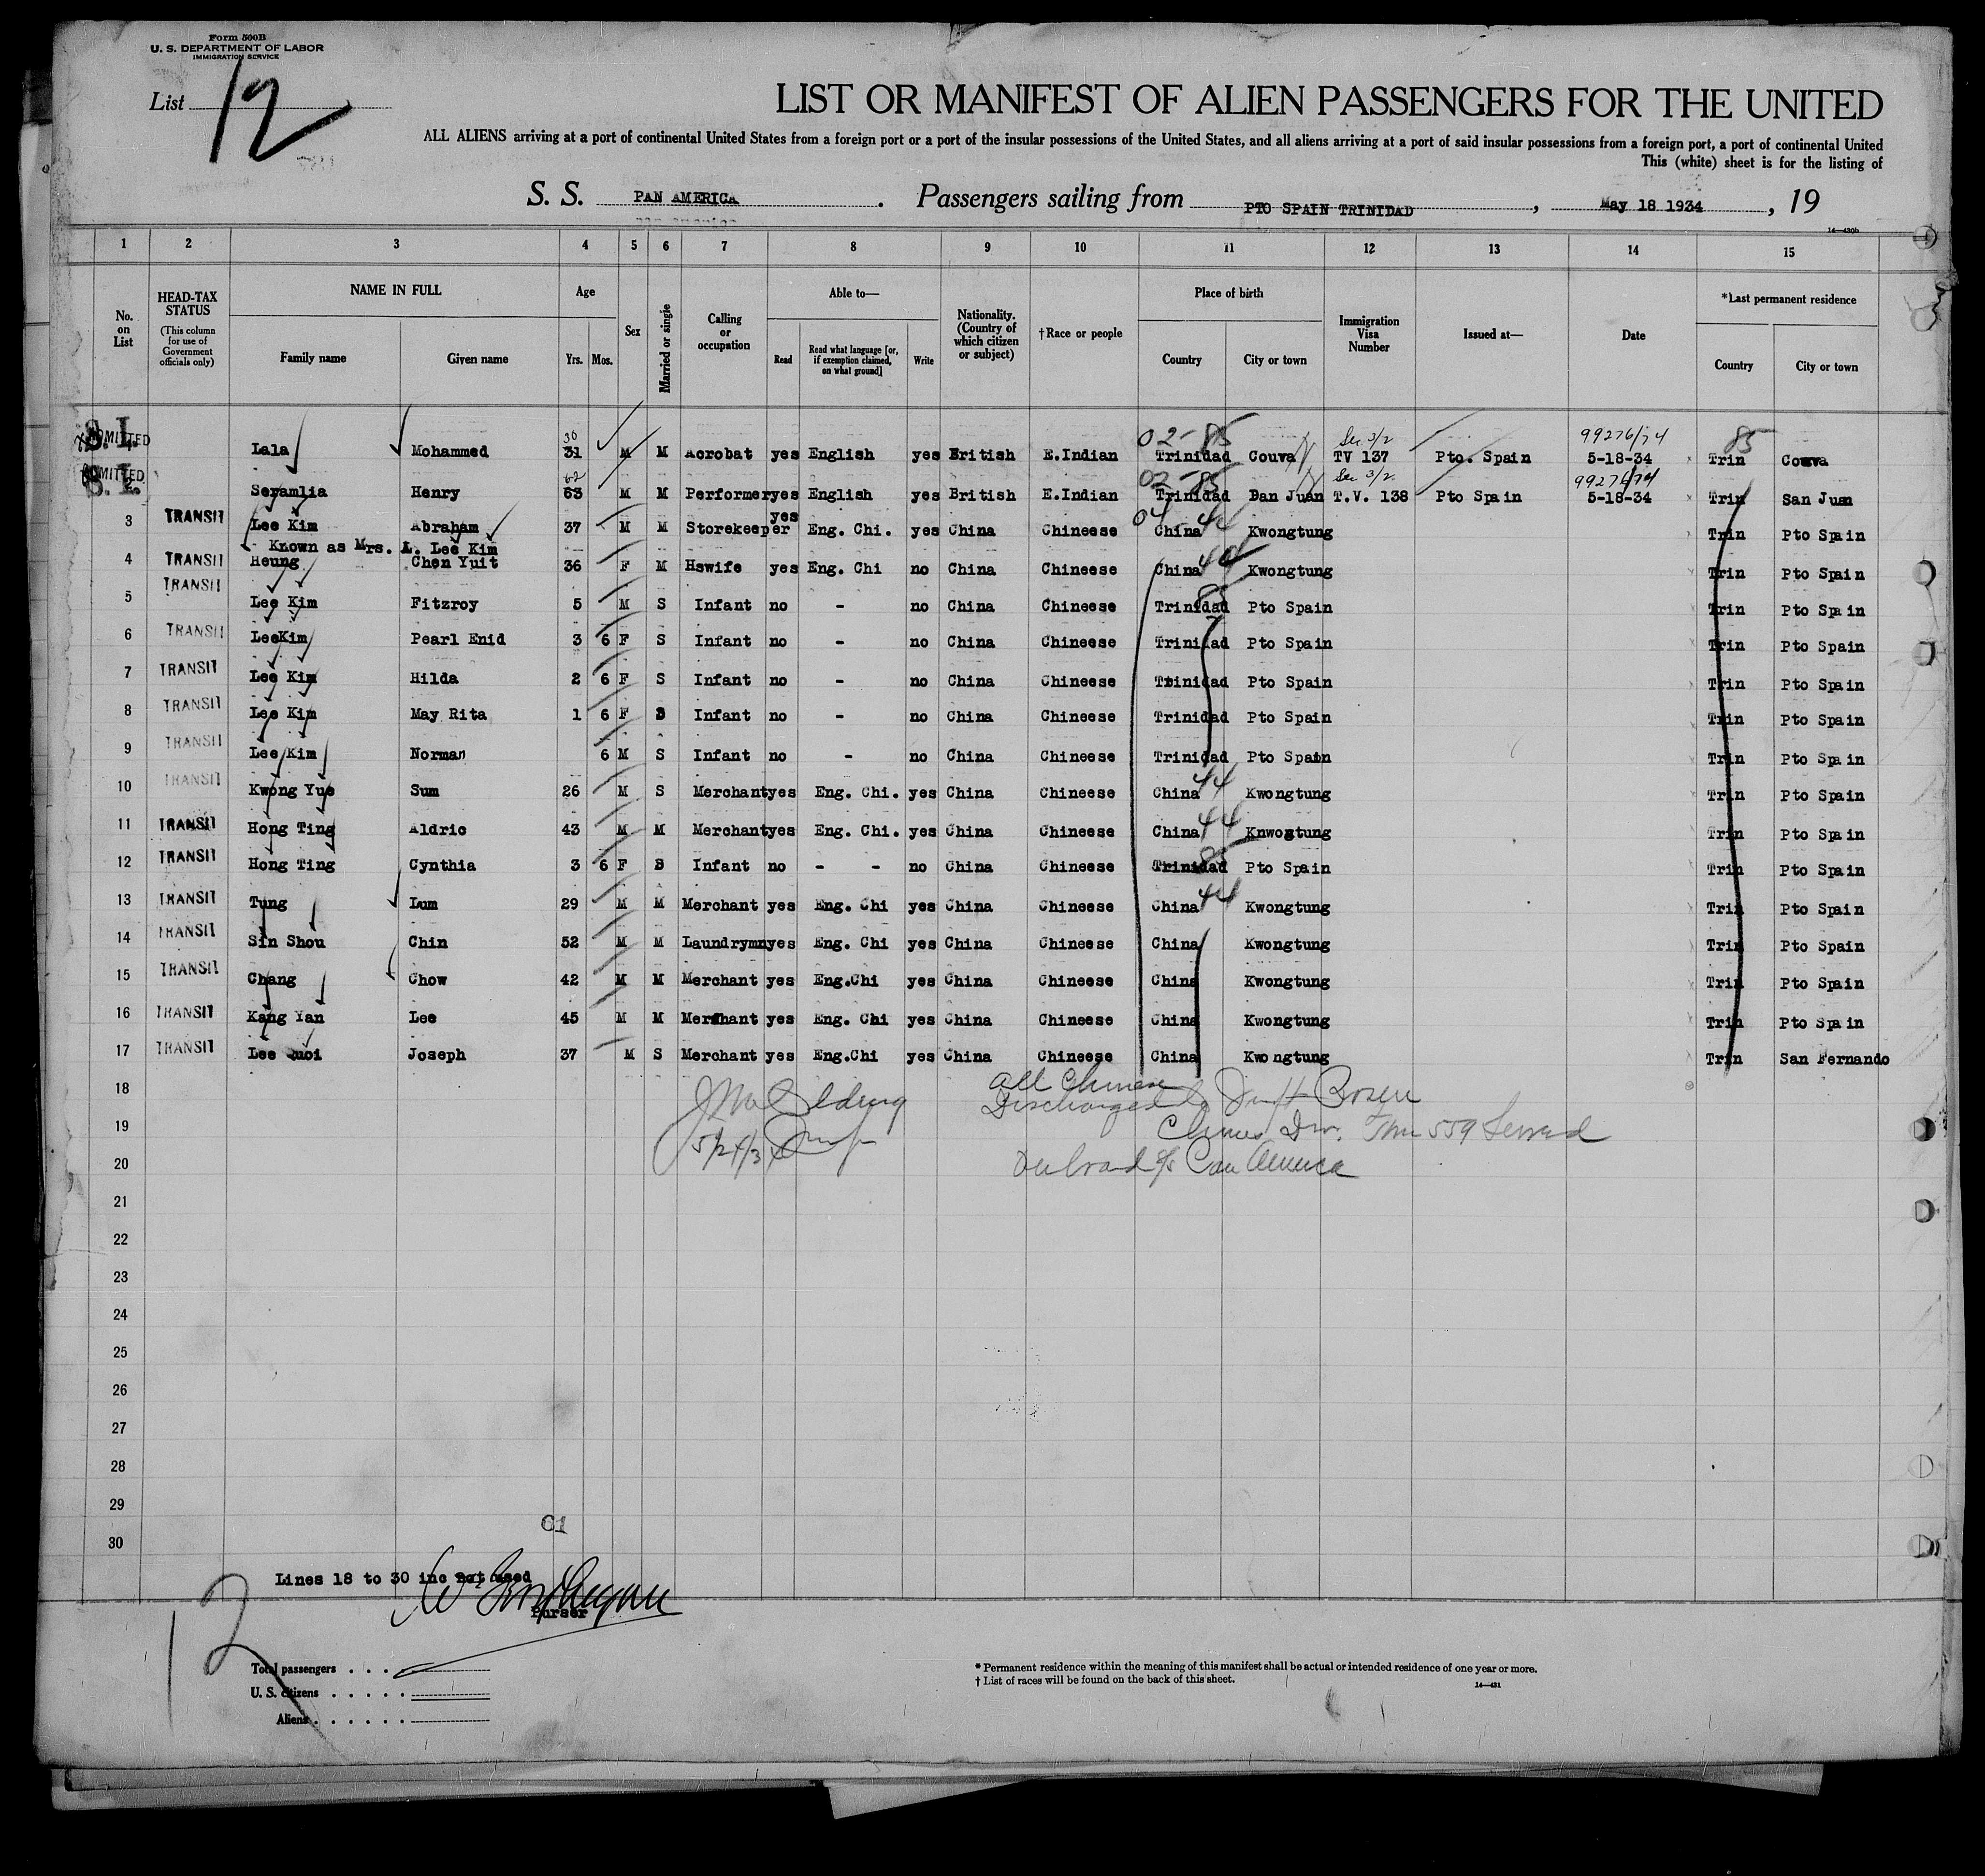 Form 500B
U. S. DEPARTMENT OF LABOR
IMMIGRATION SERVICE
List 12
LIST OR MANIFEST OF ALIEN PASSENGERS FOR THE UNITED
ALL ALIENS arriving at a port of continental United States from a foreign port or a port of the insular possessions of the United States, and all aliens arriving at a port of said insular possessions from a foreign port, a port of continental United
This (white) sheet is for the listing of
S. S. PAN AMERICA . Passengers sailing from PTO SPAIN TRINIDAD , May 18 1934 , 19
14—430b
1 2 3 4 5 6 7 8 9 10 11 12 13 14 15
No. on List
HEAD-TAX STATUS (This column for use of Government officials only)
NAME IN FULL
Family name Given name
Age
Yrs. Mos.
Sex
Married or single
Calling or occupation
Able to—
Read Read what language [or, if exemption claimed, on what ground] Write
Nationality. (Country of which citizen or subject)
†Race or people
Place of birth
Country City or town
Immigration Visa Number
Issued at—
Date
*Last permanent residence
Country City or town
30 02-85 Sec 3/2 99276/74 85
S. I. ADMITTED Lala Mohammed 31 M M Acrobat yes English yes British E.Indian Trinidad Couva TV 137 Pto. Spain 5-18-34 Trin Couva
62 02-85 Sec 3/2 99276/74
S. I. ADMITTED Seramlia Henry 63 M M Performer yes English yes British E.Indian Trinidad Dan Juan T.V. 138 Pto Spain 5-18-34 Trin San Juan
3 TRANSIT Lee Kim Abraham 37 M M Storekeeper yes Eng. Chi. yes China Chineese 04 44 China Kwongtung Trin Pto Spain
Known as Mrs. L. Lee Kim
4 TRANSIT Heung Chen Yuit 36 F M Hswife yes Eng. Chi no China Chineese China 44 Kwongtung Trin Pto Spain
5 TRANSIT Lee Kim Fitzroy 5 M S Infant no - no China Chineese Trinidad 85 Pto Spain Trin Pto Spain
6 TRANSIT LeeKim Pearl Enid 3 6 F S Infant no - no China Chineese Trinidad Pto Spain Trin Pto Spain
7 TRANSIT Lee Kim Hilda 2 6 F S Infant no - no China Chineese Trinidad Pto Spain Trin Pto Spain
8 TRANSIT Lee Kim May Rita 1 6 F S Infant no - no China Chineese Trinidad Pto Spain Trin Pto Spain
9 TRANSIT Lee Kim Norman 6 M S Infant no - no China Chineese Trinidad Pto Spain Trin Pto Spain
10 TRANSIT Kwong Yue Sum 26 M S Merchant yes Eng. Chi. yes China Chineese China 44 Kwongtung Trin Pto Spain
11 TRANSIT Hong Ting Aldric 43 M M Merchant yes Eng. Chi. yes China Chineese China 44 Knwogtung Trin Pto Spain
12 TRANSIT Hong Ting Cynthia 3 6 F S Infant no - - no China Chineese Trinidad 85 Pto Spain Trin Pto Spain
13 TRANSIT Tung Lum 29 M M Merchant yes Eng. Chi yes China Chineese China 44 Kwongtung Trin Pto Spain
14 TRANSIT Sin Shou Chin 52 M M Laundrymn yes Eng. Chi yes China Chineese China Kwongtung Trin Pto Spain
15 TRANSIT Chang Chow 42 M M Merchant yes Eng.Chi yes China Chineese China Kwongtung Trin Pto Spain
16 TRANSIT Kang Yan Lee 45 M M Merchant yes Eng. Chi yes China Chineese China Kwongtung Trin Pto Spain
17 TRANSIT Lee Quoi Joseph 37 M S Merchant yes Eng.Chi yes China Chineese China Kwongtung Trin San Fernando
18 All Chinese
Discharged to Insp Rosen
19 Chinese Div. Form 559 Served
5/21/34 Insp
20 on board s/s Pan America
21
22
23
24
25
26
27
28
29
30
01
Lines 18 to 30 inc not used
Purser
12
Total passengers
U. S. citizens
Aliens
* Permanent residence within the meaning of this manifest shall be actual or intended residence of one year or more.
† List of races will be found on the back of this sheet.
14—431